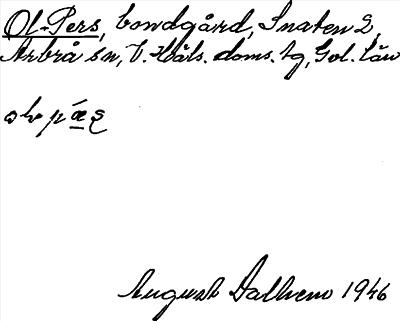 Ol-Pers, bondgård, Snaten 2,
Arbrå sn, V. Häls. doms. tg, Gvl. län
August Dalhem 1946